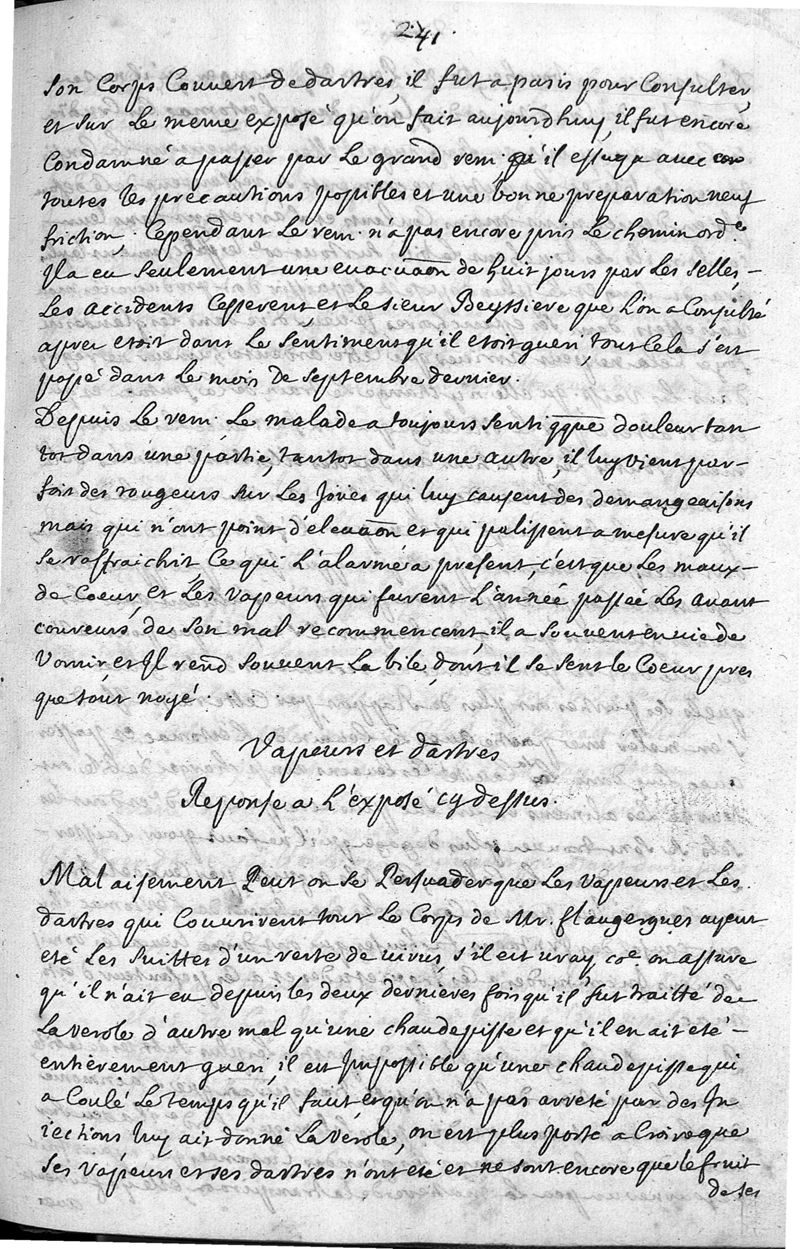 241.
Son Corps Couvert de dartres, il fut a paris pour Consulter,
et sur Le meme exposé qu'on fait aujourd'huy, il fut encore
Condamné a passer par Le grand rem. qu'il essuya avec
toutes les precautions possibles et une bonne preparation neuf
friction, Cependant Le rem. n'a pas encore pris Le chemin ord.e
Il a eu seulement une evacuaon de huit jours par Les selles,
Les accidents Cesserent et Le sieur Beyssiere que L'on a Consulté
apres etoit dans Le sentiment qu'il etoit gueri, tout Cela s'est
passé dans Le mois De septembre dernier.
Depuis Le rem. Le malade a toujours senti qque douleur tan
tot dans une partie, tantot dans une autre, il luy vient par-
fois des rougeurs sur Les Joües qui luy causent des demangeaisons
mais qui n'ont point d'elevaon et qui palissent a mesure qu'il
se raffraichit Ce qui L'alarme a present, c'est que Les maux
de Coeur, et Les vapeurs qui furent L'année passée Les avant
coureurs de son mal recommencent, il a souvent envie de
Vomir, et Il rend souvent La bile, dont il se sent le Coeur pres
que tout noyé.
Vapeurs et dartres
Reponse a L'exposé cy dessus.
Mal aisement Peut on se Persuader que Les vapeurs et Les
dartres qui Couvrirent tout Le Corps de Mr. flaugergues ayent
eté Les suittes d'un reste de virus, s'il est vray, coe on assure
qu'il n'ait eu depuis les deux dernieres fois qu'il fut traitté de
La verole d'autre mal qu'une chaudepisse et qu'il en ait eté
entièrement gueri, il est Impossible qu'une chaudepisse qui
a Coulé Le temps qu'il faut, et qu'on n'a pas arreté par des In
iections luy ait donné La verole, on est plus porté a Croire que
ses vapeurs et ses dartres n'ont eté et ne sont encore que le fruit
de ses